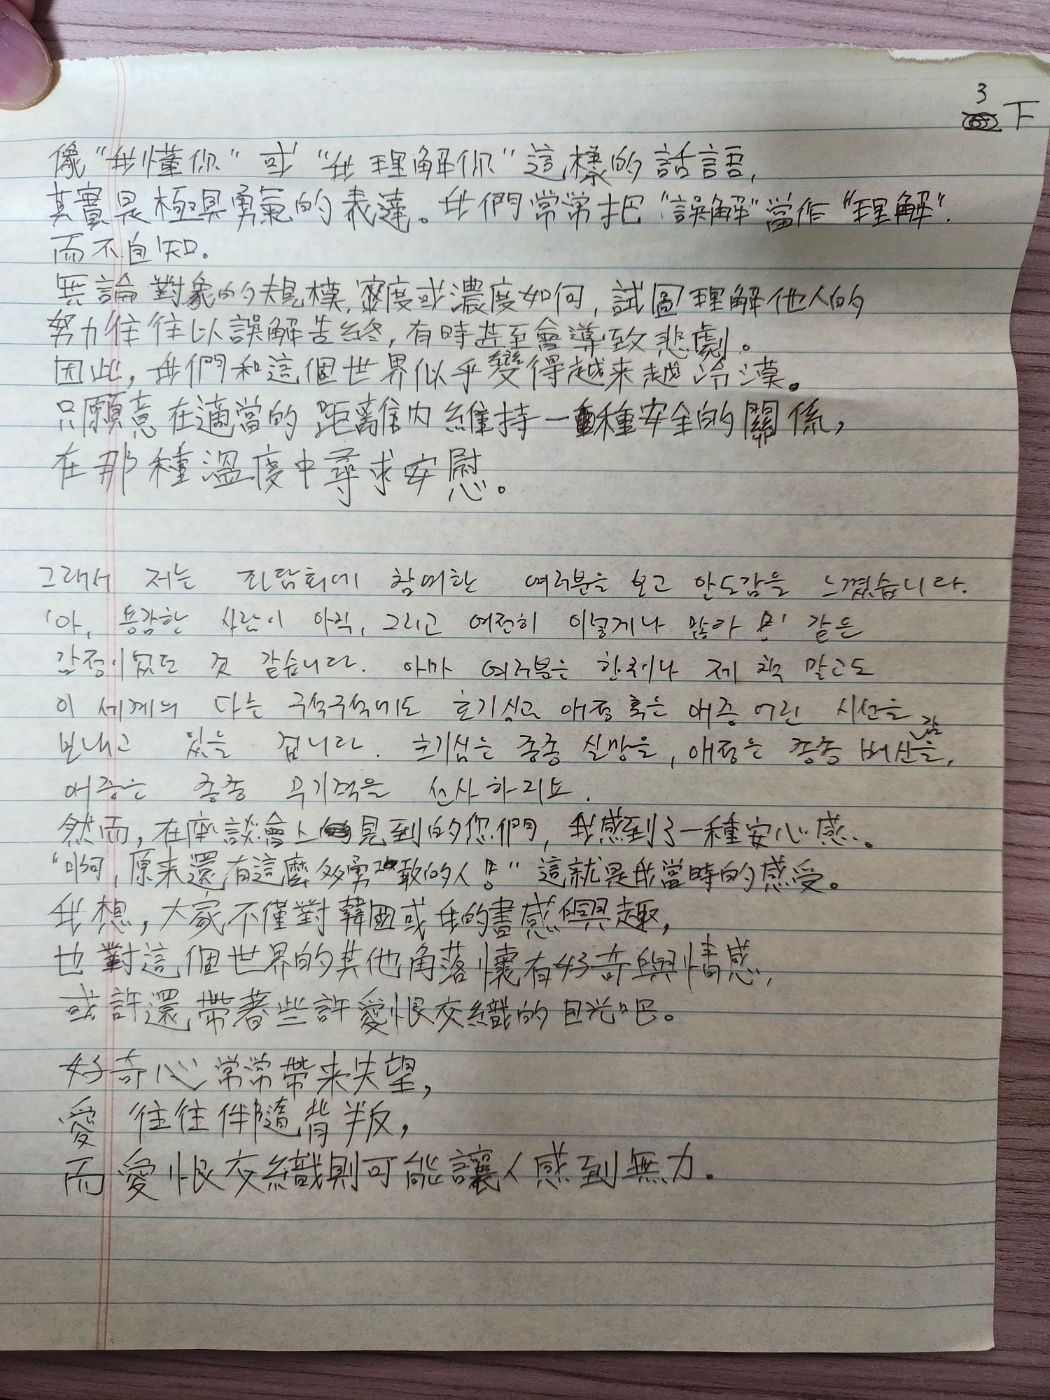 3
下
像“我懂你”或“我理解你”這樣的話語,
其實是極具勇氣的表達。我們常常把“誤解”當作“理解”.
而不自知.
無論對象的規模,密度或濃度如何,試圖理解他人的
努力往往以誤解告終,有時甚至會導致悲劇。
因此,我們和這個世界似乎變得越来越冷漠。
只願意在適當的距離內維持一種安全的關係,
在那種溫度中尋求安慰。
그래서 저는 좌담회에 참여한 여러분을 보고 안도감을 느꼈습니다.
'아, 용감한 사람이 아직, 그리고 여전히 이렇게나 많아요' 같은
감정이었던 것 같습니다. 아마 여러분은 한국이나 제 책 말고도
이 세계의 다른 구석구석에도 호기심과 애정 혹은 애증 어린 시선을
보내고 있을 겁니다. 호기심은 종종 실망을, 애정은 종종 배신감을,
애증은 종종 무기력을 선사하지요.
然而,在座談會上見到的您們,我感到了一種安心感.。
“啊,原来還有這麼多勇敢的人" 這就是我當時的感受。
我想,大家不僅對韓國或我的書感興趣,
也對這個世界的其他角落懷有好奇與情感,
或許還帶著些許愛恨交織的目光吧。
好奇心常常帶来失望,
愛往往伴隨背叛,
而愛恨交織則可能讓人感到無力.